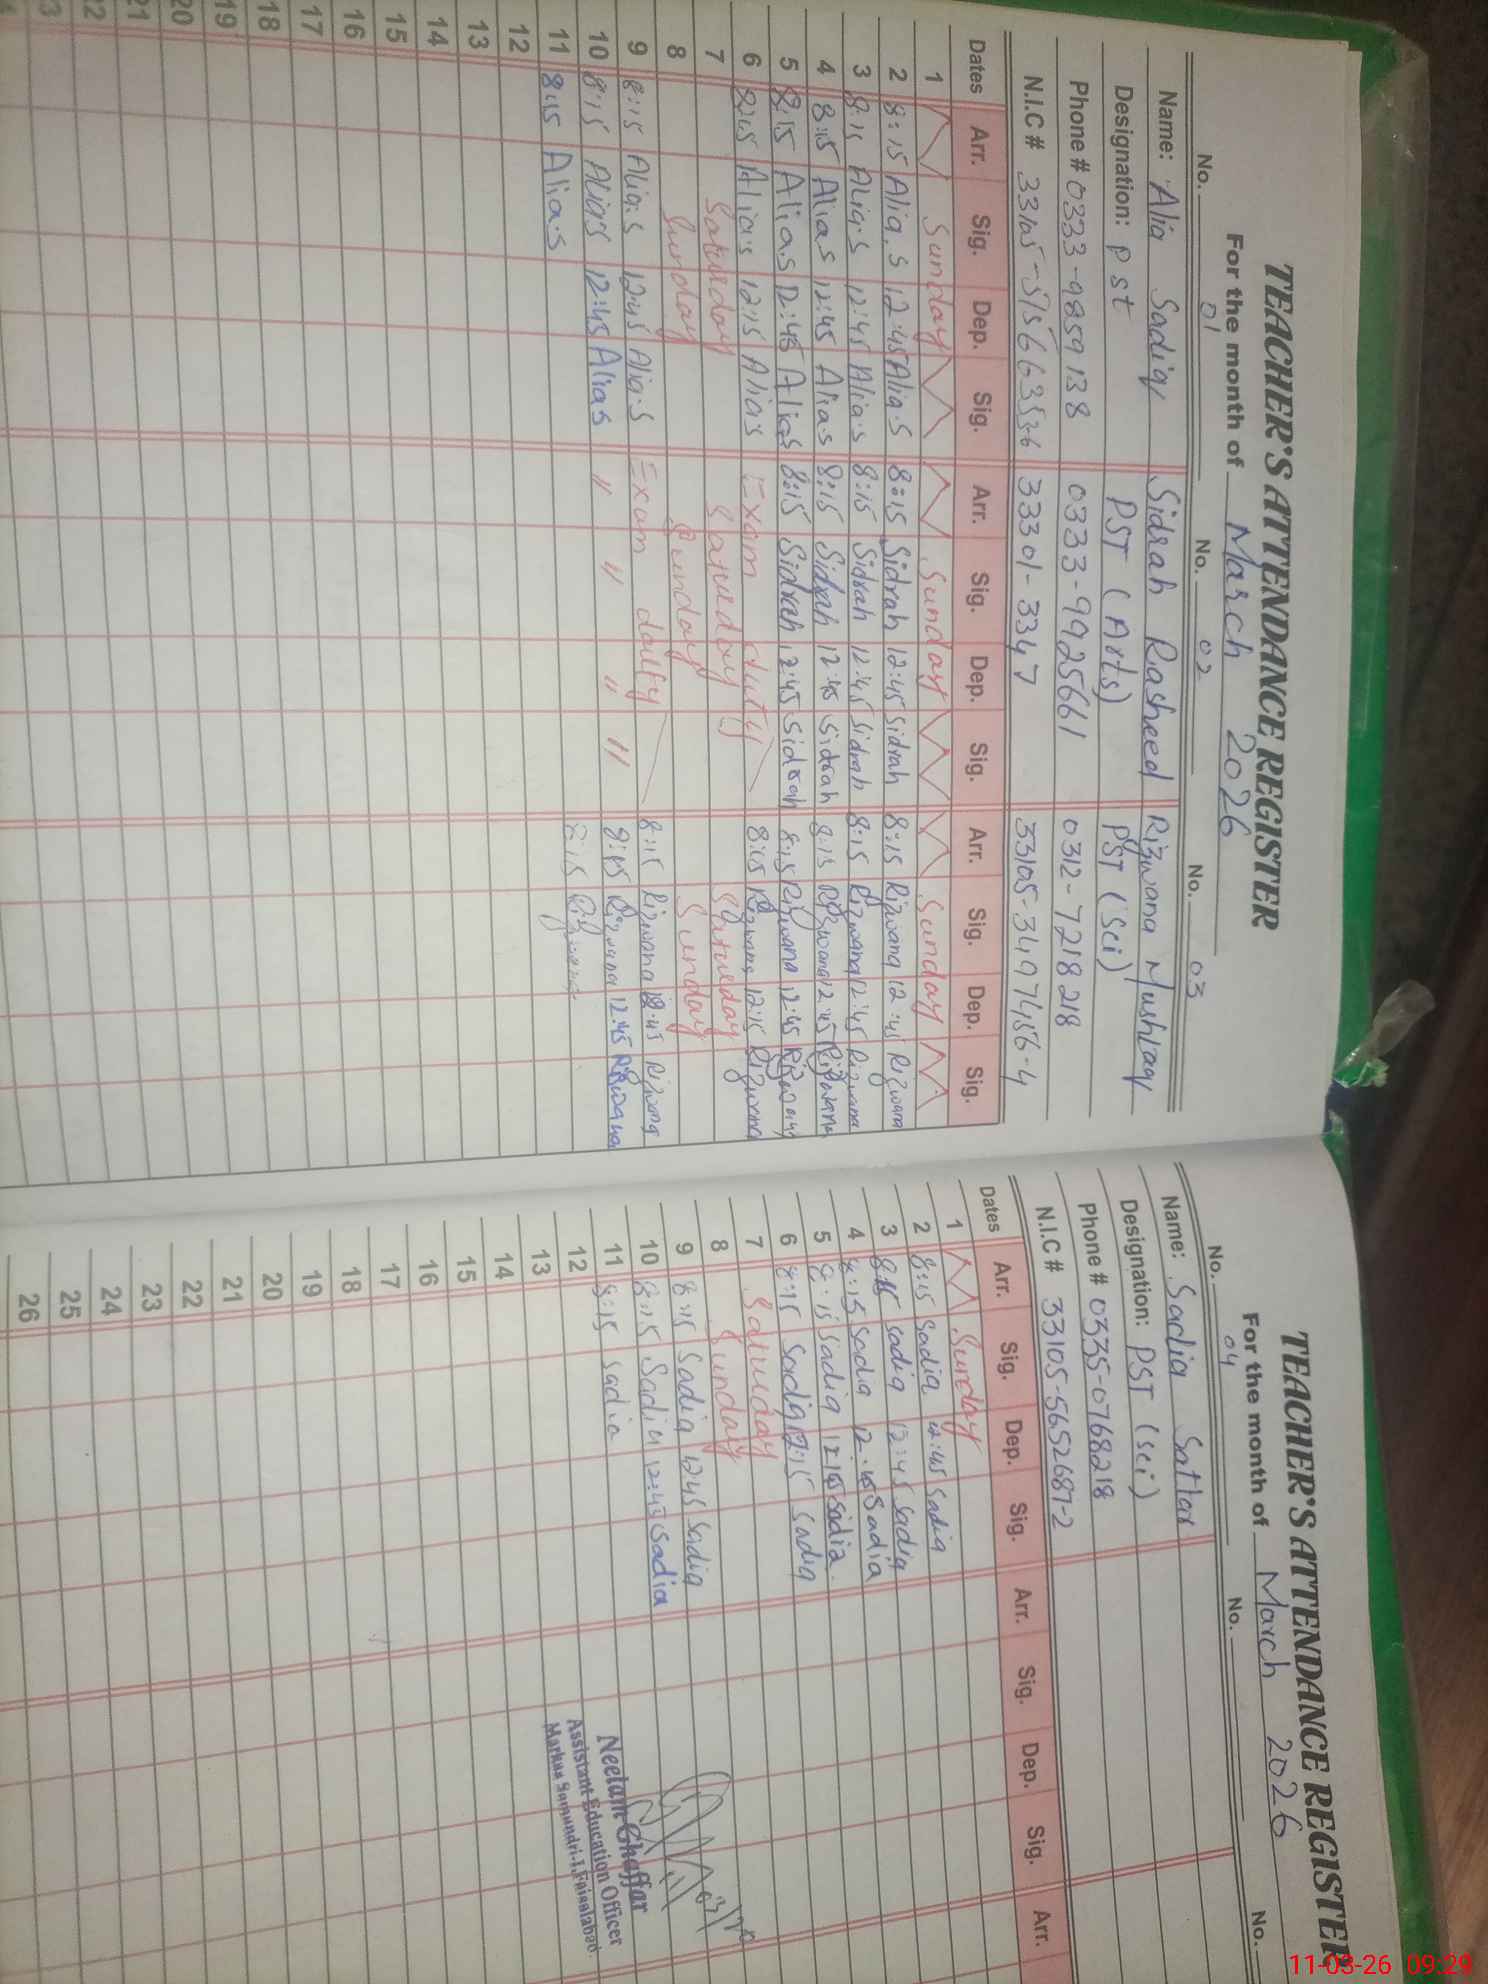 TEACHER'S ATTENDANCE REGISTER
For the month of March 2026
No. 01 No. 02 No. 03
Name: Alia Sadiq Sidrah Rasheed Rizwana Mushtaq
Designation: pst PST (Arts) PST (Sci)
Phone # 0333-9859138 0333-9925661 0312-7218218
N.I.C # 33301-3347 33105-3497456-4
Dates Arr. Sig. Dep. Sig. Arr. Sig. Dep. Sig. Arr. Sig. Dep. Sig.
1 Sunday Sunday Sunday
2 8:15 Alia.S 12:45 Alia.S 8:15 Sidrah 12:45 Sidrah 8:15 Rizwana 12:45 Rizwana
3 8:15 Alia.S 12:45 Alia.S 8:15 Sidrah 12:45 Sidrah 8:15 Rizwana 12:45 Rizwana
4 8:15 Alia.S 12:45 Alia.S 8:15 Sidrah 12:45 Sidrah 8:15 Rizwana 12:45 Rizwana
5 8:15 Alia.S 12:45 Alia.S 8:15 Sidrah 12:45 Sidrah 8:15 Rizwana 12:45 Rizwana
6 8:15 Alia.S 12:15 Alia.S Exam duty 8:15 Rizwana 12:15 Rizwana
7 Satueday Satueday Satueday
8 Sunday Sunday Sunday
9 8:15 Alia.S 12:45 Alia.S Exam dauty 8:15 Rizwana 12:45 Rizwana
10 8:15 Alia.S 12:45 Alia.S " " " " 8:15 Rizwana 12:45 Rizwana
11 8:15 Alia.S 8:15 Rizwana
12
13
14
15
16
17
18
19
20
21
22
TEACHER'S ATTENDANCE REGISTER
For the month of March 2026
No. 04 No. No.
Name: Sadia Sattar
Designation: PST (Sci)
Phone # 0335-0768218
N.I.C # 33105-5652687-2
Dates Arr. Sig. Dep. Sig. Arr. Sig. Dep. Sig. Arr.
1 Sunday
2 8:15 Sadia 12:45 Sadia
3 8:15 Sadia 12:45 Sadia
4 8:15 Sadia 12:45 Sadia
5 8:15 Sadia Sadia
6 8:15 Sadia 12:15 Sadia
7 Satueday
8 Sunday
9 8:15 Sadia 1245 Sadia
10 8:15 Sadia 12:45 Sadia
11 8:15 Sadia
12
13
14
15
16
17
18
19
20
21
22
23
24
25
26
Neelam Ghaffar
Assistant Education Officer
Markaz Samundri-I, Faisalabad.
11-03-26 09:29